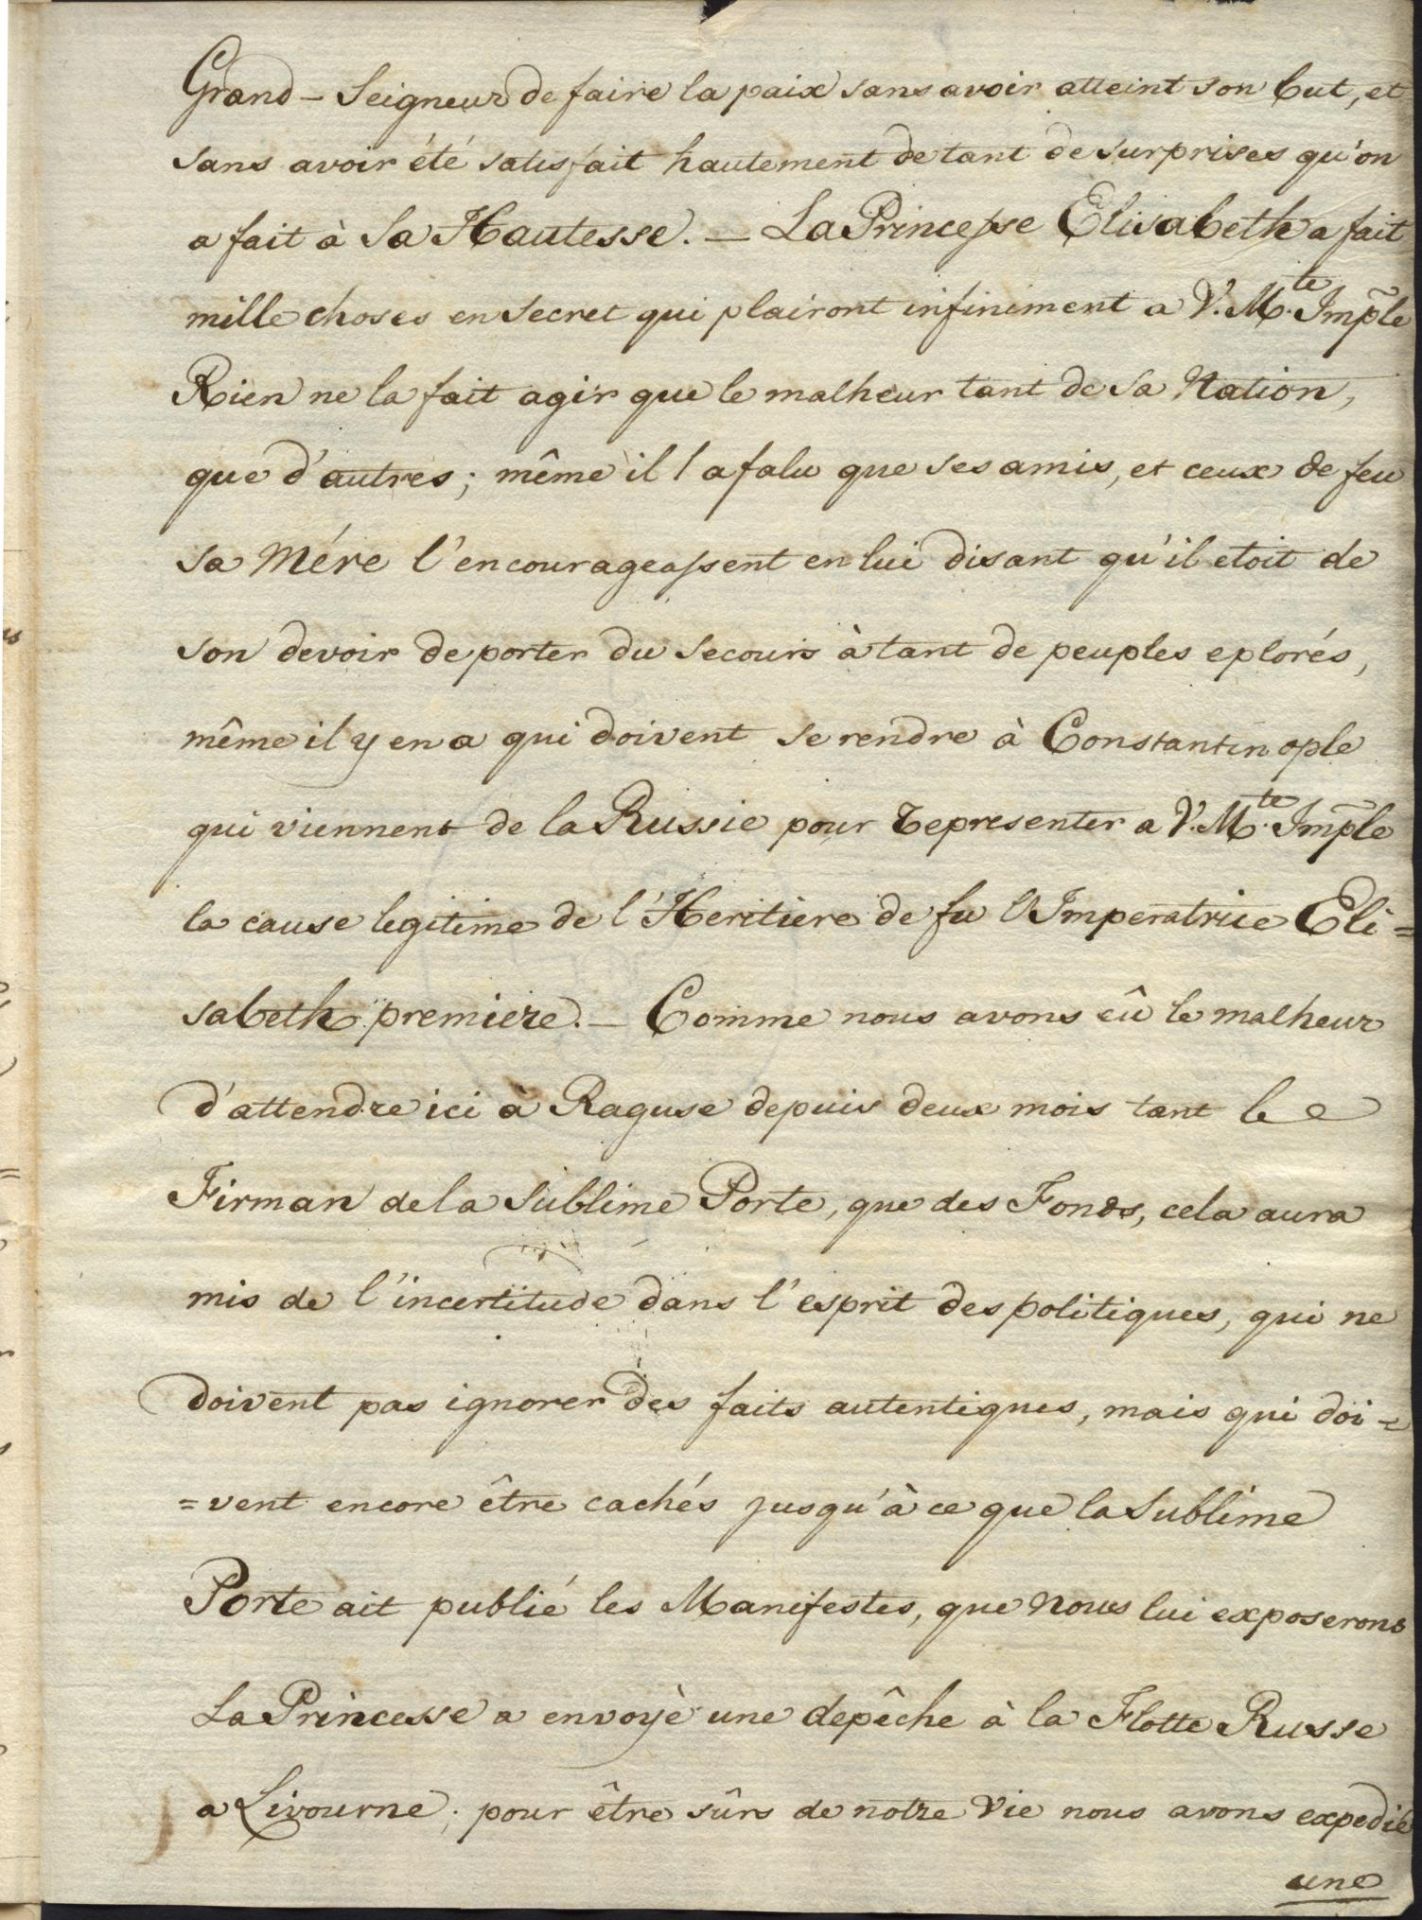 Grand-Seigneur de faire la paix sans avoir atteint son but, et
sans avoir été satisfait hautement de tant de surprises qu'on
a fait à Sa Hautesse. — La Princesse Elisabeth a fait
mille choses en secret qui plairont infiniment a V. M.te Imple
Rien ne la fait agir que le malheur tant de sa Nation,
que d'autres; même il l a falu que ses amis, et ceux de feu
sa Mére l'encourageassent en lui disant qu'il etoit de
son devoir de porter du secours à tant de peuples eplorés,
même il y en a qui doivent se rendre à Constantinople
qui viennent de la Russie pour representer a V. M.te Imple
la cause legitime de l'Heritiere de fu l'Imperatrice Eli=
sabeth premiere. — Comme nous avons eû le malheur
d'attendre ici à Raguse depuis deux mois tant le
Firman de la Sublime Porte, que des Fonds, cela aura
mis de l'incertitude dans l'esprit des politiques, qui ne
doivent pas ignorer des faits autentiques, mais qui doi=
=vent encore être cachés jusqu'à ce que la Sublime
Porte ait publié les Manifestes, que Nous lui exposerons
La Princesse a envoyè une depêche à la Flotte Russe
a Livourne; pour être sûrs de notre Vie nous avons expedié
une